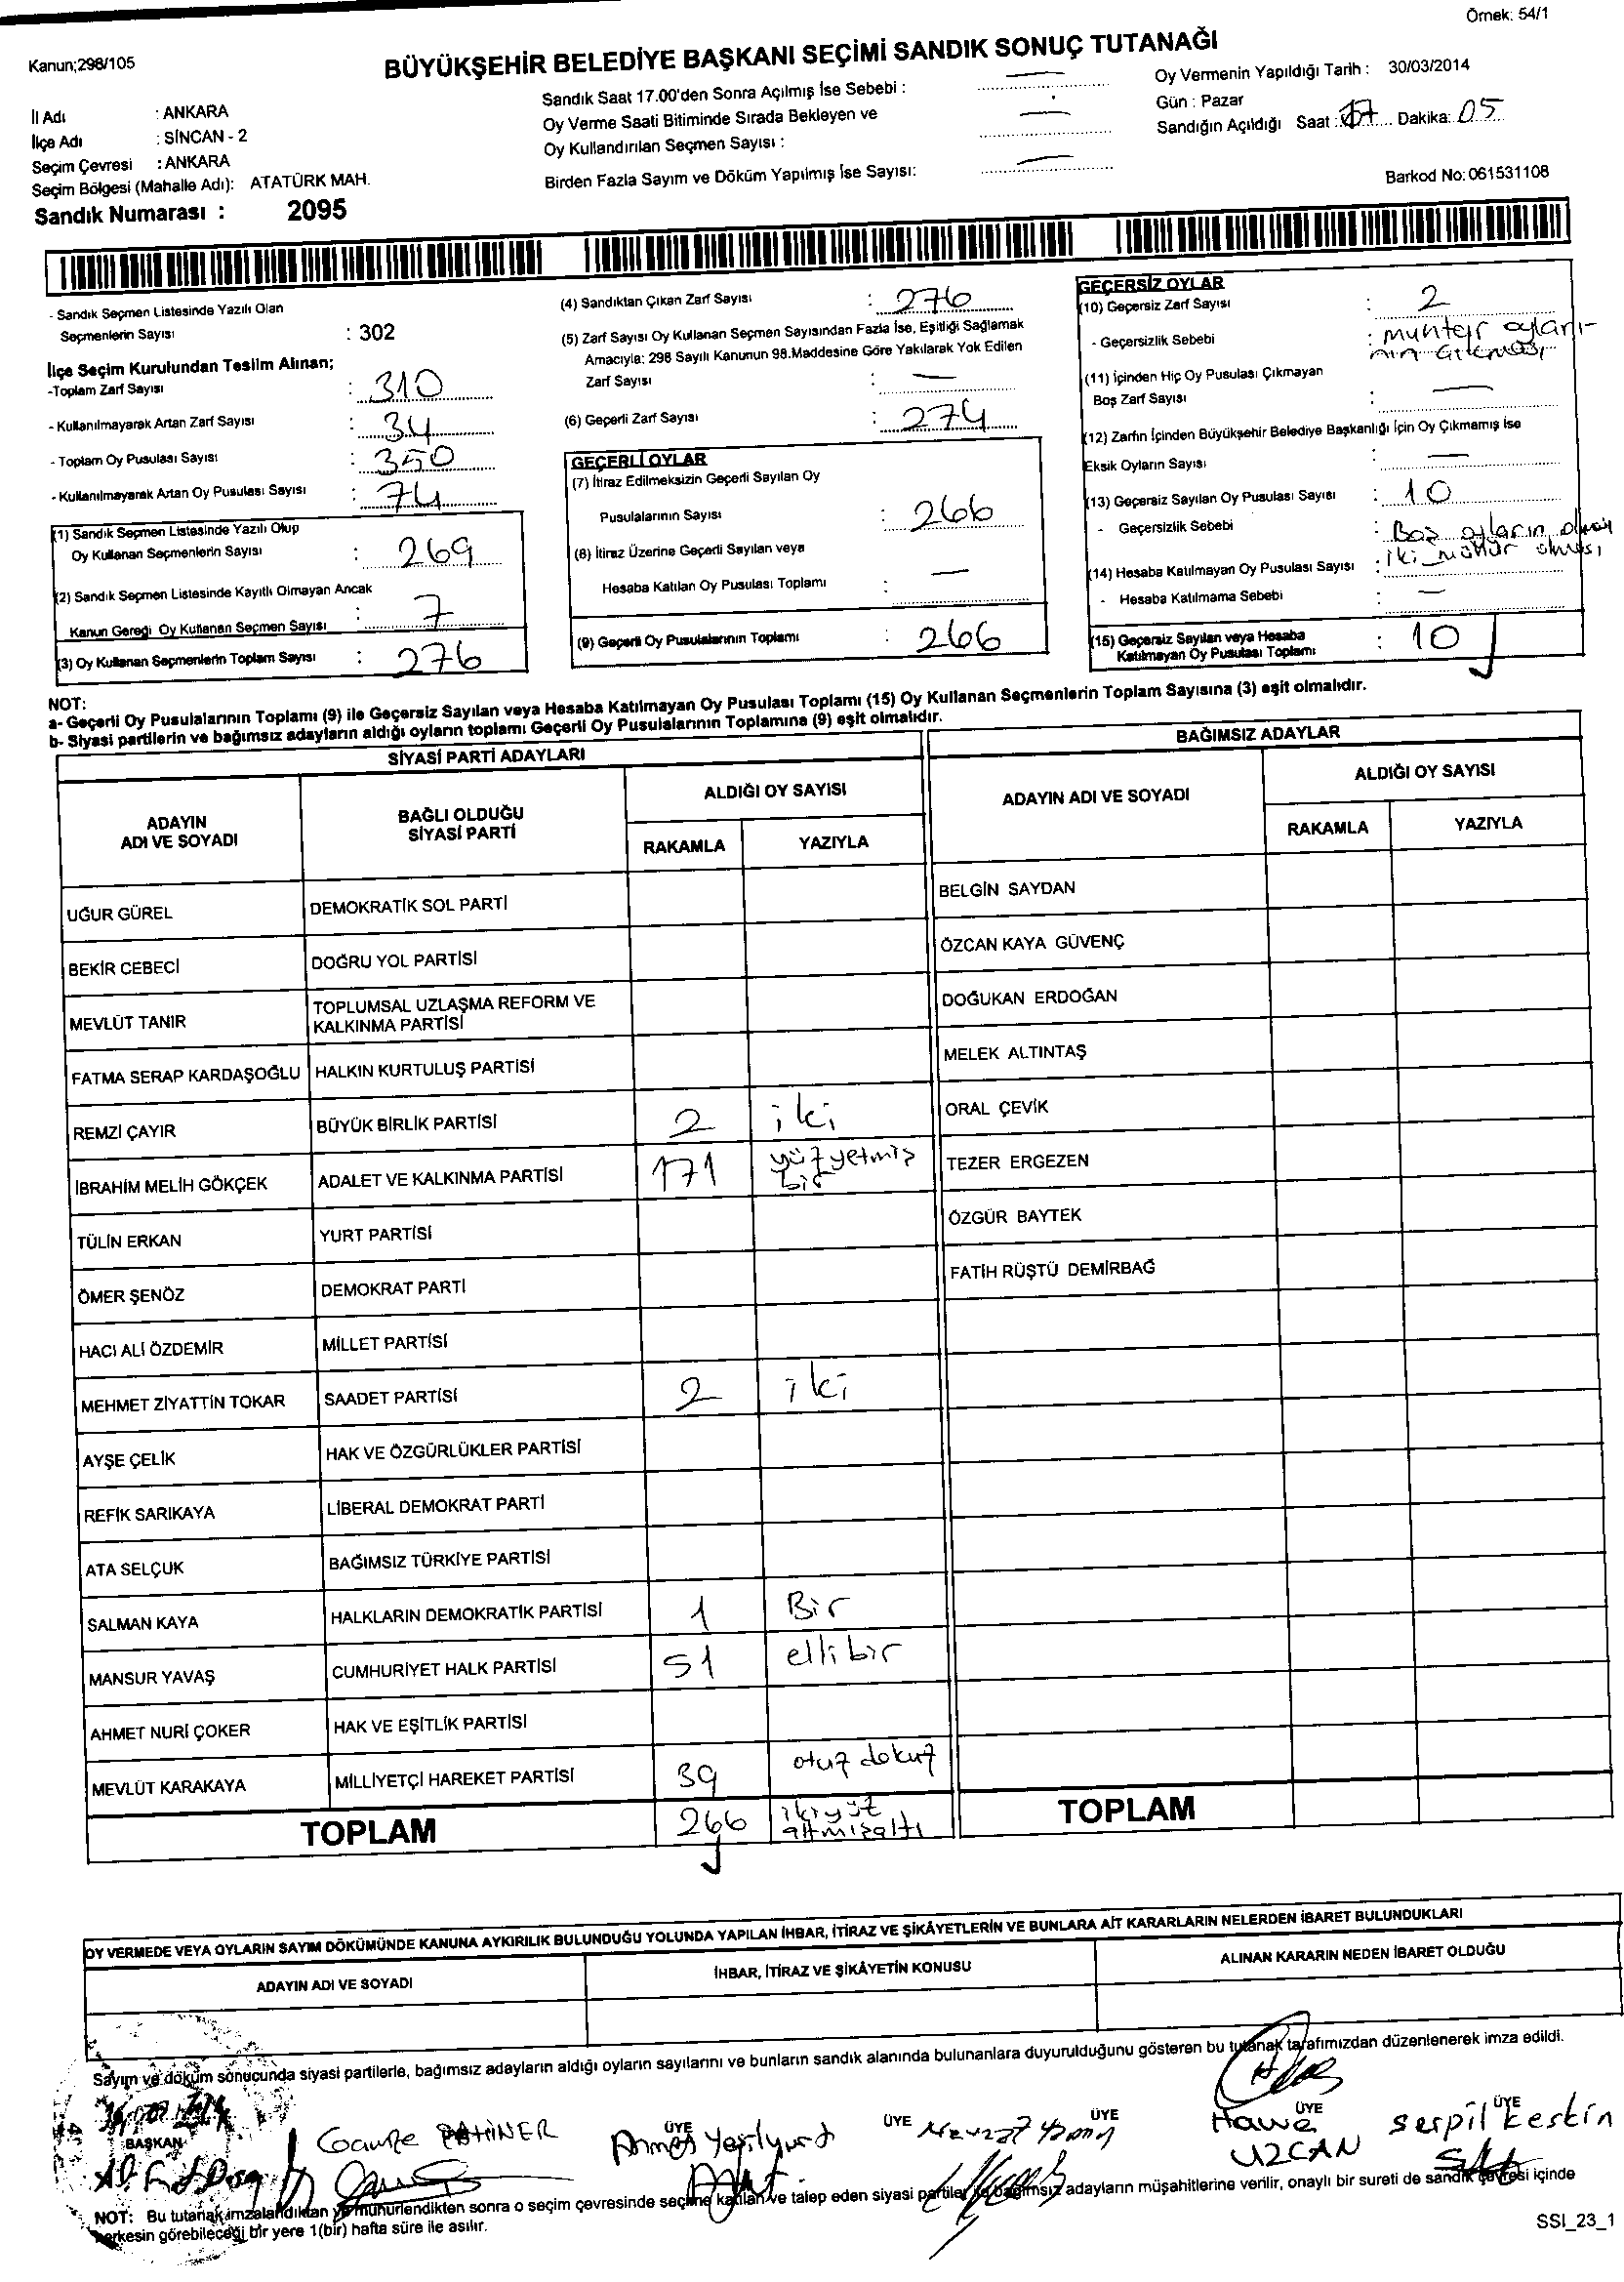 Örnek: 54/1
Kanun;298/105
BÜYÜKŞEHİR BELEDİYE BAŞKANI SEÇİMİ SANDIK SONUÇ TUTANAĞI
İl Adı : ANKARA
İlçe Adı : SİNCAN - 2
Seçim Çevresi : ANKARA
Seçim Bölgesi (Mahalle Adı): ATATÜRK MAH.
Sandık Numarası : 2095
Sandık Saat 17.00'den Sonra Açılmış İse Sebebi : —
Oy Verme Saati Bitiminde Sırada Bekleyen ve
Oy Kullandırılan Seçmen Sayısı : —
Birden Fazla Sayım ve Döküm Yapılmış İse Sayısı: —
Oy Vermenin Yapıldığı Tarih : 30/03/2014
Gün : Pazar
Sandığın Açıldığı Saat : 17 Dakika: 05
Barkod No: 061531108
- Sandık Seçmen Listesinde Yazılı Olan
Seçmenlerin Sayısı : 302
İlçe Seçim Kurulundan Teslim Alınan;
-Toplam Zarf Sayısı : 310
- Kullanılmayarak Artan Zarf Sayısı : 34
- Toplam Oy Pusulası Sayısı : 350
- Kullanılmayarak Artan Oy Pusulası Sayısı : 74
(1) Sandık Seçmen Listesinde Yazılı Olup
Oy Kullanan Seçmenlerin Sayısı : 269
(2) Sandık Seçmen Listesinde Kayıtlı Olmayan Ancak
Kanun Gereği Oy Kullanan Seçmen Sayısı : 7
(3) Oy Kullanan Seçmenlerin Toplam Sayısı : 276
(4) Sandıktan Çıkan Zarf Sayısı : 276
(5) Zarf Sayısı Oy Kullanan Seçmen Sayısından Fazla İse, Eşitliği Sağlamak
Amacıyla: 298 Sayılı Kanunun 98.Maddesine Göre Yakılarak Yok Edilen
Zarf Sayısı : —
(6) Geçerli Zarf Sayısı : 274
GEÇERLİ OYLAR
(7) İtiraz Edilmeksizin Geçerli Sayılan Oy
Pusulalarının Sayısı : 266
(8) İtiraz Üzerine Geçerli Sayılan veya
Hesaba Katılan Oy Pusulası Toplamı : —
(9) Geçerli Oy Pusulalarının Toplamı : 266
GEÇERSİZ OYLAR
(10) Geçersiz Zarf Sayısı : 2
- Geçersizlik Sebebi : muhtar oyları-
nın
(11) İçinden Hiç Oy Pusulası Çıkmayan
Boş Zarf Sayısı : —
(12) Zarfın İçinden Büyükşehir Belediye Başkanlığı İçin Oy Çıkmamış İse
Eksik Oyların Sayısı : —
(13) Geçersiz Sayılan Oy Pusulası Sayısı : 10
- Geçersizlik Sebebi : Boş oyların olması
iki mühür olması
(14) Hesaba Katılmayan Oy Pusulası Sayısı :
- Hesaba Katılmama Sebebi : —
(15) Geçersiz Sayılan veya Hesaba
Katılmayan Oy Pusulası Toplamı : 10
NOT:
a- Geçerli Oy Pusulalarının Toplamı (9) ile Geçersiz Sayılan veya Hesaba Katılmayan Oy Pusulası Toplamı (15) Oy Kullanan Seçmenlerin Toplam Sayısına (3) eşit olmalıdır.
b- Siyasi partilerin ve bağımsız adayların aldığı oyların toplamı Geçerli Oy Pusulalarının Toplamına (9) eşit olmalıdır.
SİYASİ PARTİ ADAYLARI
ADAYIN
ADI VE SOYADI
BAĞLI OLDUĞU
SİYASİ PARTİ
ALDIĞI OY SAYISI
RAKAMLA YAZIYLA
UĞUR GÜREL DEMOKRATİK SOL PARTİ
BEKİR CEBECİ DOĞRU YOL PARTİSİ
MEVLÜT TANIR TOPLUMSAL UZLAŞMA REFORM VE
KALKINMA PARTİSİ
FATMA SERAP KARDAŞOĞLU HALKIN KURTULUŞ PARTİSİ
REMZİ ÇAYIR BÜYÜK BİRLİK PARTİSİ 2 iki
İBRAHİM MELİH GÖKÇEK ADALET VE KALKINMA PARTİSİ 171 yüzyetmiş
bir
TÜLİN ERKAN YURT PARTİSİ
ÖMER ŞENÖZ DEMOKRAT PARTİ
HACI ALİ ÖZDEMİR MİLLET PARTİSİ
MEHMET ZİYATTİN TOKAR SAADET PARTİSİ 2 iki
AYŞE ÇELİK HAK VE ÖZGÜRLÜKLER PARTİSİ
REFİK SARIKAYA LİBERAL DEMOKRAT PARTİ
ATA SELÇUK BAĞIMSIZ TÜRKİYE PARTİSİ
SALMAN KAYA HALKLARIN DEMOKRATİK PARTİSİ 1 Bir
MANSUR YAVAŞ CUMHURİYET HALK PARTİSİ 51 elli bir
AHMET NURİ ÇOKER HAK VE EŞİTLİK PARTİSİ
MEVLÜT KARAKAYA MİLLİYETÇİ HAREKET PARTİSİ 39 otuz dokuz
TOPLAM 266 ikiyüz
altmışaltı
BAĞIMSIZ ADAYLAR
ADAYIN ADI VE SOYADI
ALDIĞI OY SAYISI
RAKAMLA YAZIYLA
BELGİN SAYDAN
ÖZCAN KAYA GÜVENÇ
DOĞUKAN ERDOĞAN
MELEK ALTINTAŞ
ORAL ÇEVİK
TEZER ERGEZEN
ÖZGÜR BAYTEK
FATİH RÜŞTÜ DEMİRBAĞ
TOPLAM
OY VERMEDE VEYA OYLARIN SAYIM DÖKÜMÜNDE KANUNA AYKIRILIK BULUNDUĞU YOLUNDA YAPILAN İHBAR, İTİRAZ VE ŞİKÂYETLERİN VE BUNLARA AİT KARARLARIN NELERDEN İBARET BULUNDUKLARI
ADAYIN ADI VE SOYADI İHBAR, İTİRAZ VE ŞİKÂYETİN KONUSU ALINAN KARARIN NEDEN İBARET OLDUĞU
Sayım ve döküm sonucunda siyasi partilerle, bağımsız adayların aldığı oyların sayılarını ve bunların sandık alanında bulunanlara duyurulduğunu gösteren bu tutanak tarafımızdan düzenlenerek imza edildi.
BAŞKAN ÜYE ÜYE ÜYE ÜYE ÜYE
Gamze Ahmet Yeşilyurt Nevzat Hawa
UZCAN
serpil keskin
NOT: Bu tutanak imzalandıktan ve mühürlendikten sonra o seçim çevresinde seçime katılan ve talep eden siyasi partiler ile bağımsız adayların müşahitlerine verilir, onaylı bir sureti de sandık çevresi içinde
herkesin görebileceği bir yere 1(bir) hafta süre ile asılır.
SSI_23_1